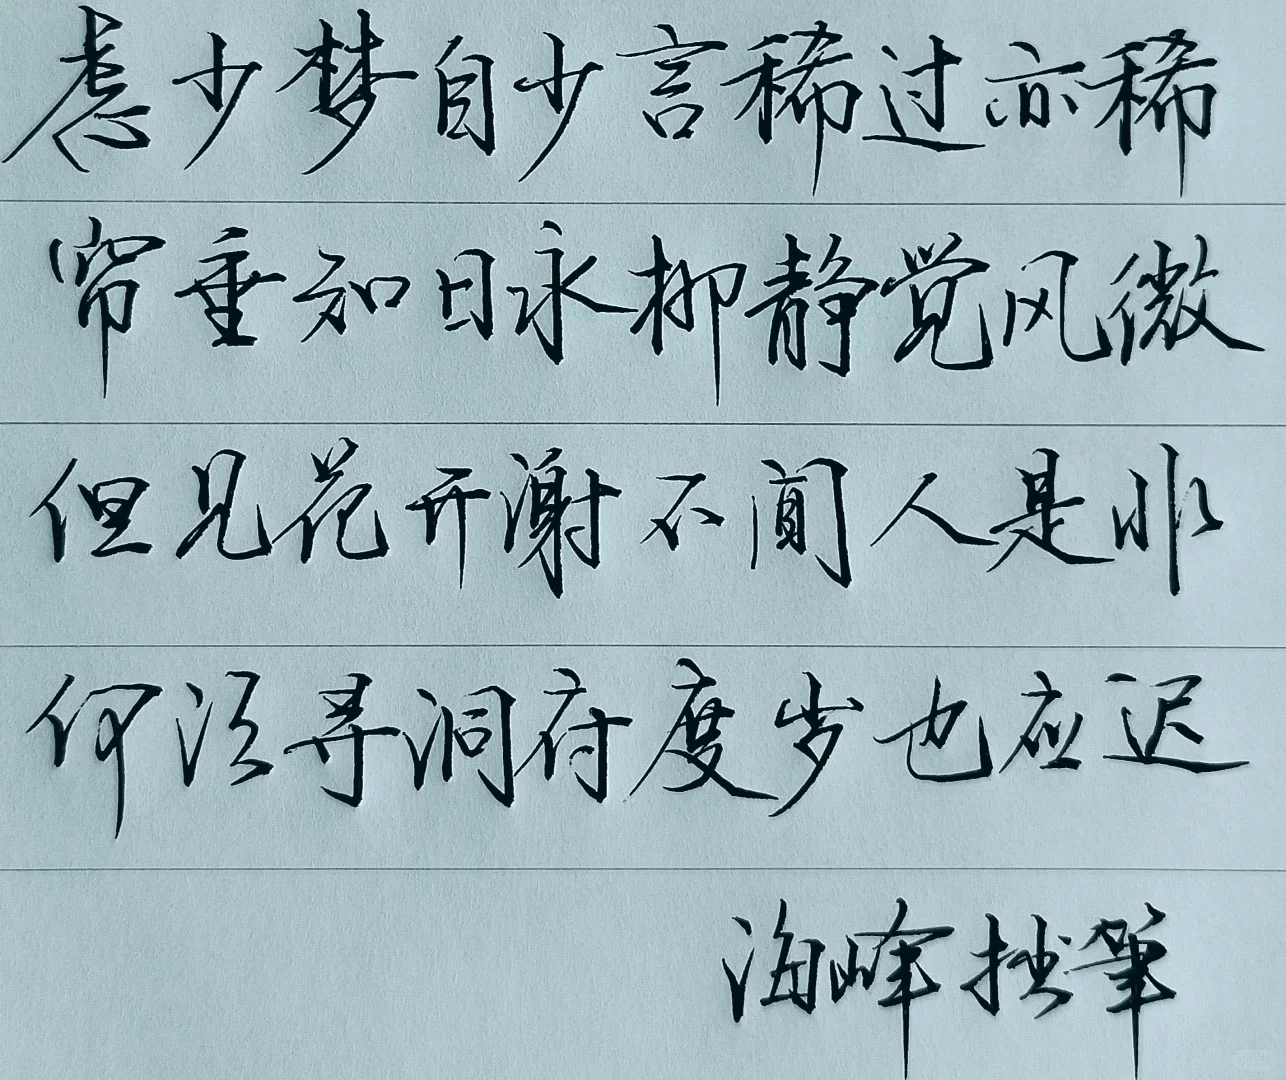 虑少梦自少言稀过亦稀
帘垂知日永柳静觉风微
但见花开谢不闻人是非
何须寻洞府度步也应迟
海峰拙筆